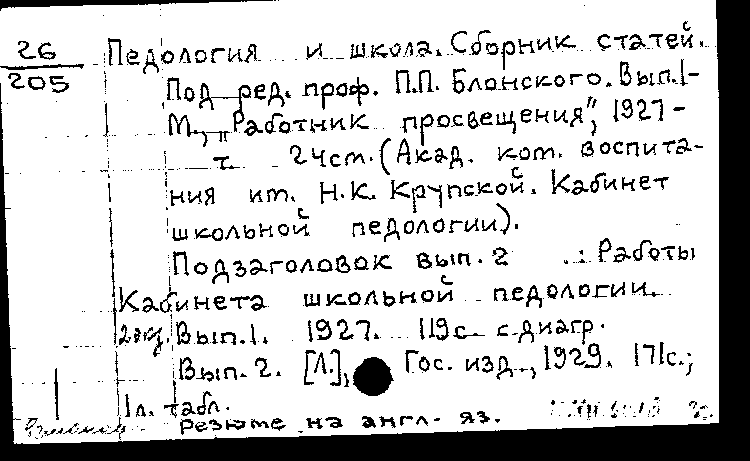 26
205
Педология и школа. Сборник статей.
Под ред. проф. П.П. Блонского. Вып.1-
М., „Работник просвещения", 1927-
т. 24см. (Акад. ком. воспита-
ния им. Н.К. Крупской. Кабинет
школьной педологии).
Подзаголовок вып. 2 .: Работы
Кабинета школьной педологии.
2 экз. Вып.1. 1927. 119с. с диагр.
Вып. 2. [Л.], Гос. изд., 1929. 171с.;
1л. табл.
резюме на англ. яз.